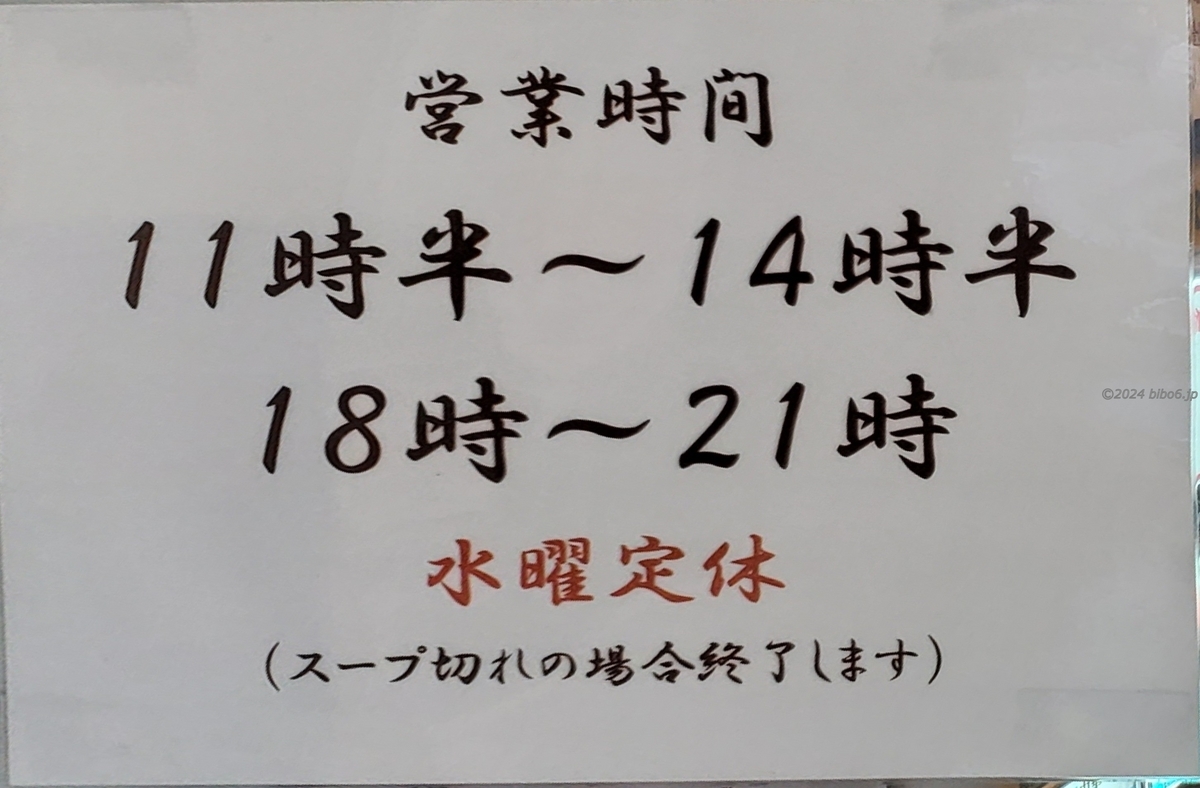 営業時間
11時半～14時半
18時～21時
©2024 bibo6.jp
水曜定休
(スープ切れの場合終了します)